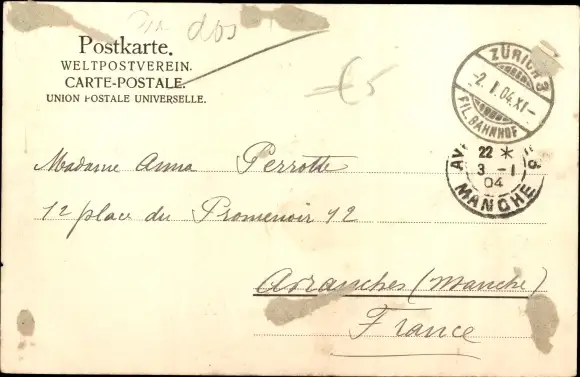 dos
Postkarte.
WELTPOSTVEREIN.
CARTE-POSTALE.
UNION POSTALE UNIVERSELLE.
€5
ZÜRICH 3
-2. I. 04. XI-
FIL. BAHNHOF
22 *
3 - 1
04
MANCHE
Madame Anna Perrotte
12 place du Promenoir 12
Avranches (Manche)
France